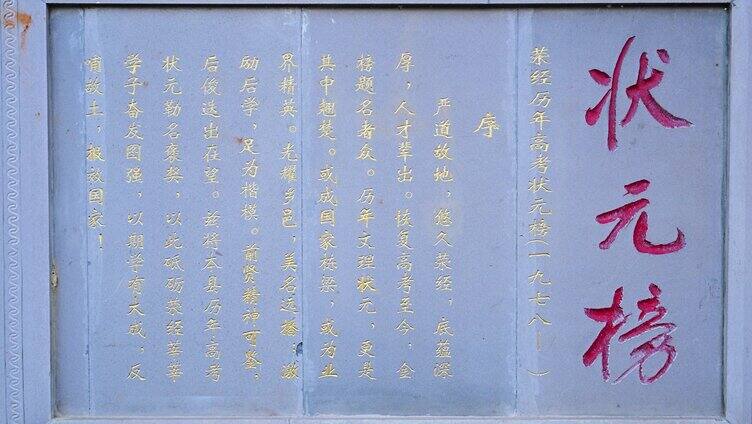 状元榜
荥经历年高考状元榜(一九七八— )
序
严道故地，悠久荥经，底蕴深
厚，人才辈出。恢复高考至今，金
榜题名者众。历年文理状元，更是
其中翘楚。或成国家栋梁，或为业
界精英。光耀乡邑，美名远播；激
励后学，足为楷模。前贤精神可鉴，
后俊迭出在望。兹将本县历年高考
状元勒名褒奖，以此砥砺荥经莘莘
学子奋发图强，以期学有大成，反
哺故土，报效国家！